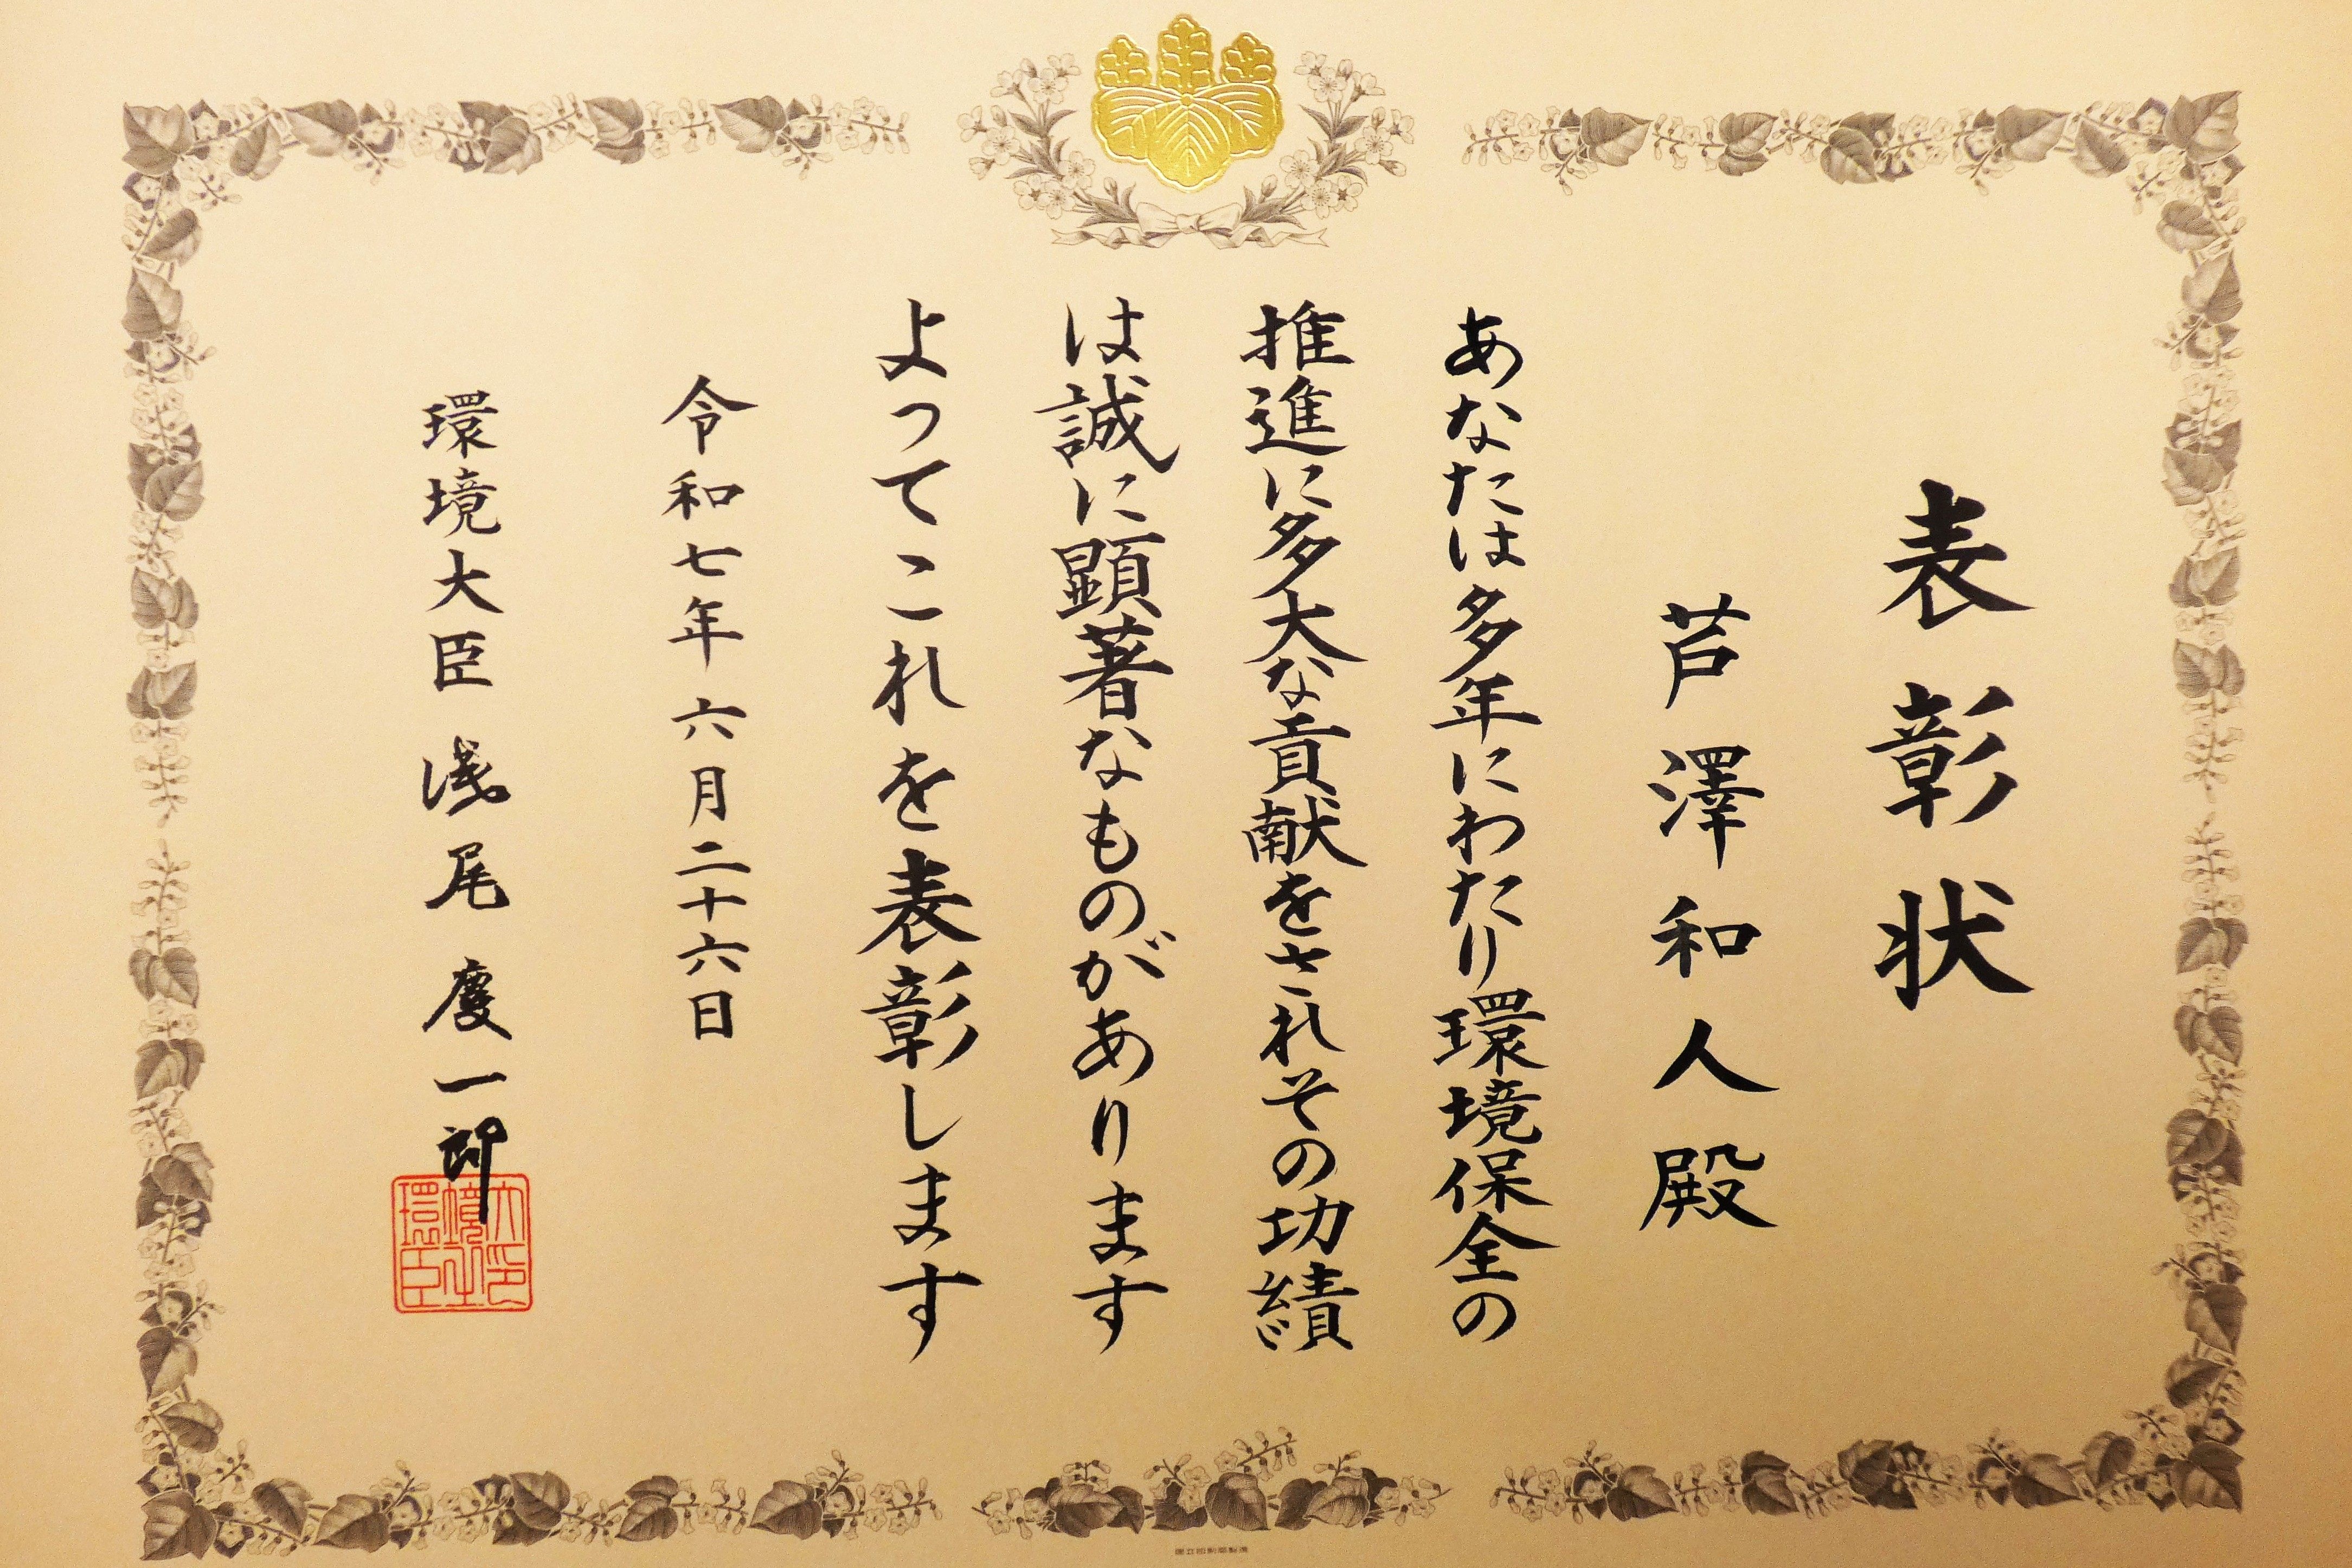 表彰状
芦澤和人殿
あなたは多年にわたり環境保全の
推進に多大な貢献をされその功績
は誠に顕著なものがあります
よってこれを表彰します
令和七年六月二十六日
環境大臣 浅尾慶一郎
大印
境之
環臣
国立印刷局製造